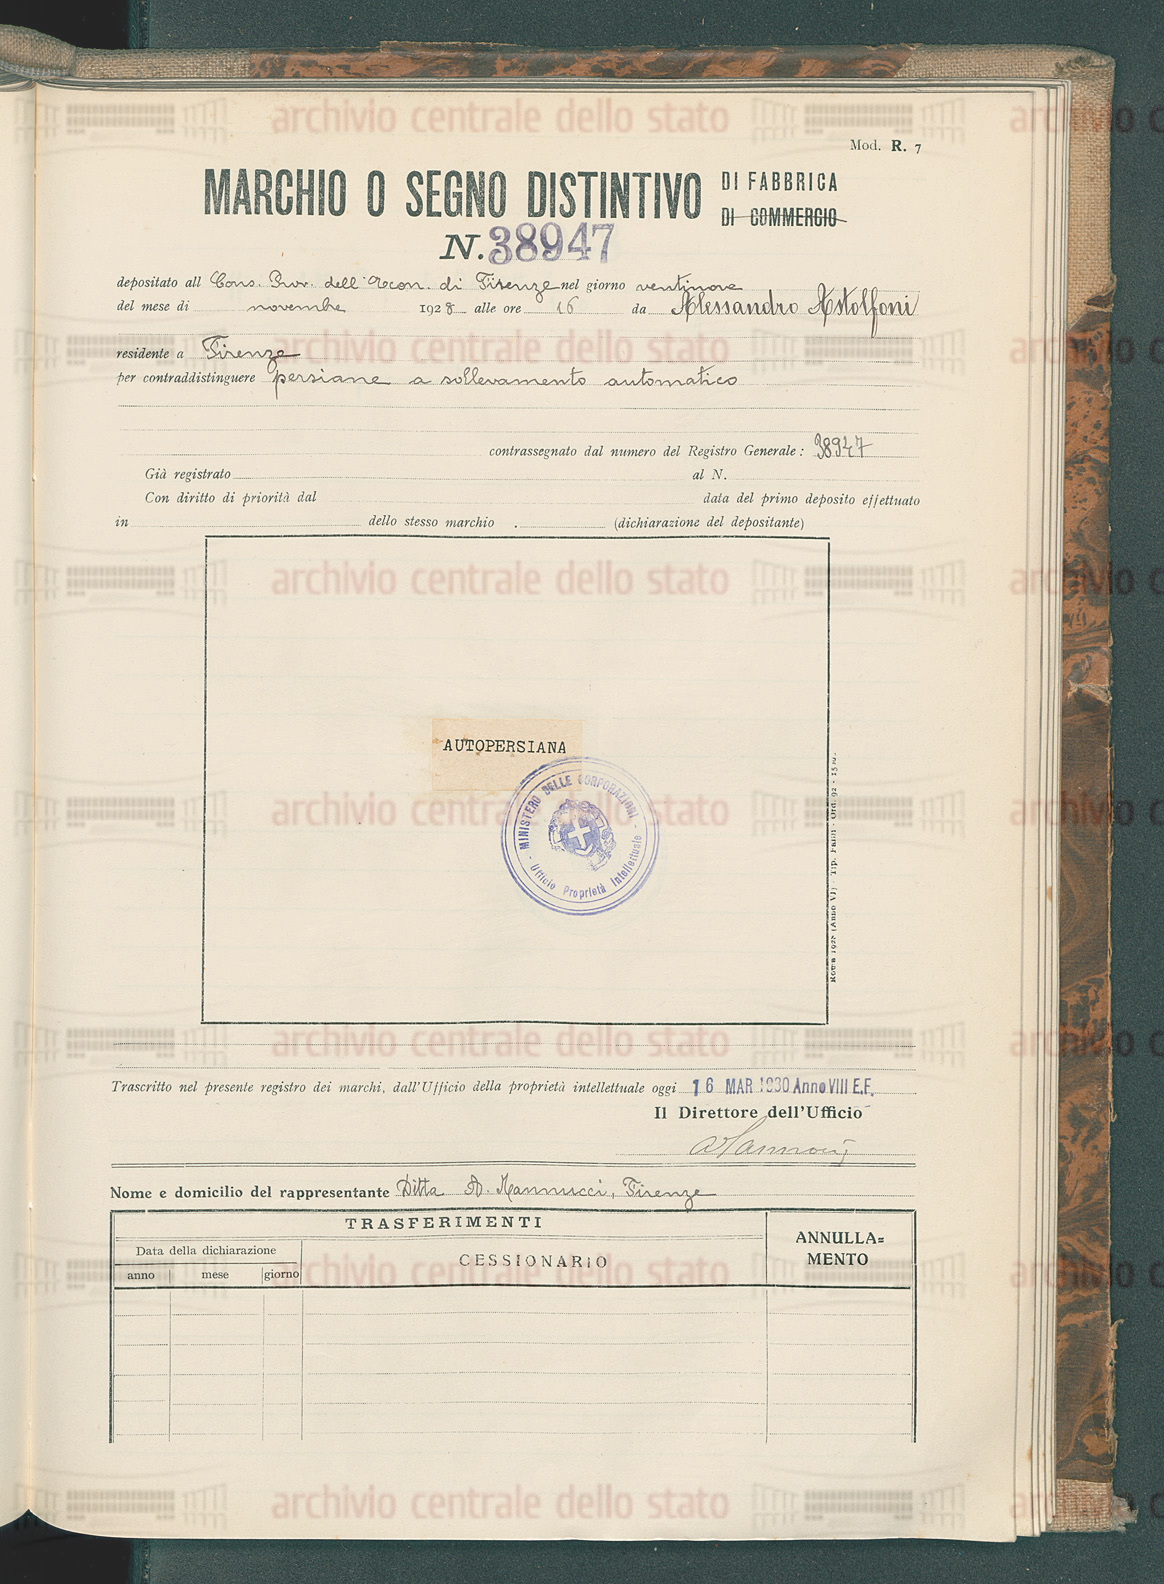 Mod. R. 7
MARCHIO O SEGNO DISTINTIVO DI FABBRICA
DI COMMERCIO
N. 38947
depositato all Cons. Prov. dell'Econ. di Firenze nel giorno ventinove
del mese di novembre 1928 alle ore 16 da Alessandro Astolfoni
residente a Firenze
per contraddistinguere persiane a sollevamento automatico
contrassegnato dal numero del Registro Generale: 38947
Già registrato al N.
Con diritto di priorità dal data del primo deposito effettuato
in dello stesso marchio . (dichiarazione del depositante)
AUTOPERSIANA
MINISTERO DELLE CORPORAZIONI
Ufficio Proprietà Intellettuale
Roma 1928 (Anno VI) - Tip. - Ord. 92 -
Trascritto nel presente registro dei marchi, dall'Ufficio della proprietà intellettuale oggi 16 MAR 1930 Anno VIII E.F.
Il Direttore dell'Ufficio
Nome e domicilio del rappresentante Ditta A. Mannucci, Firenze
TRASFERIMENTI
ANNULLA=
MENTO
Data della dichiarazione
CESSIONARIO
anno mese giorno
archivio centrale dello stato
archivio centrale dello stato
archivio centrale dello stato
archivio centrale dello stato
archivio centrale dello stato
archivio centrale dello stato
archivio centrale dello stato